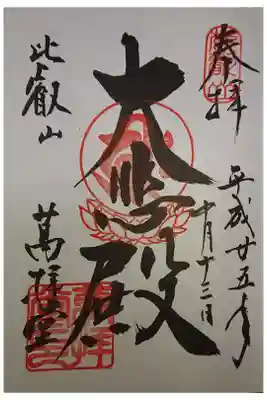 奉拝
平成廿五年
十月十三日
大悲殿
比叡山
萬拝堂